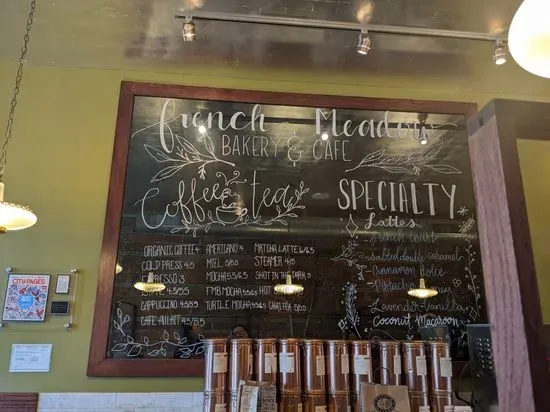 french Meadow
BAKERY & CAFE
Coffee & tea
ORGANIC COFFEE 4
COLD PRESS 4.5
ESPRESSO 3
LATTE 4.5/5.5
CAPPUCCINO 4.5/5.5
CAFE AU LAIT
AMERICANO 4
MIEL 5/6.5
MOCHA 5.5/6.5
FMB MOCHA
TURTLE MOCHA
MATCHA LATTE 6/6.5
STEAMER 4/5
SHOT IN THE DARK 5
HOT
CHAI TEA
SPECIALTY
Lattes
french toast
salted double caramel
Cinnamon dolce
Pistachio
Lavender-Vanilla
Coconut Macaroon
CITY PAGES
BEST